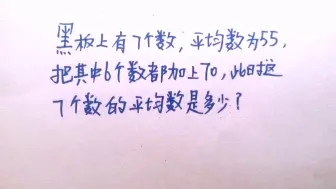 黑板上有7个数,平均数为55,
把其中6个数都加上70,此时这
7个数的平均数是多少?